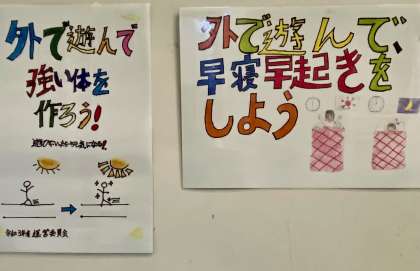 外で遊んで
強い体を
作ろう！
外で遊んで、
早寝早起きを
しよう